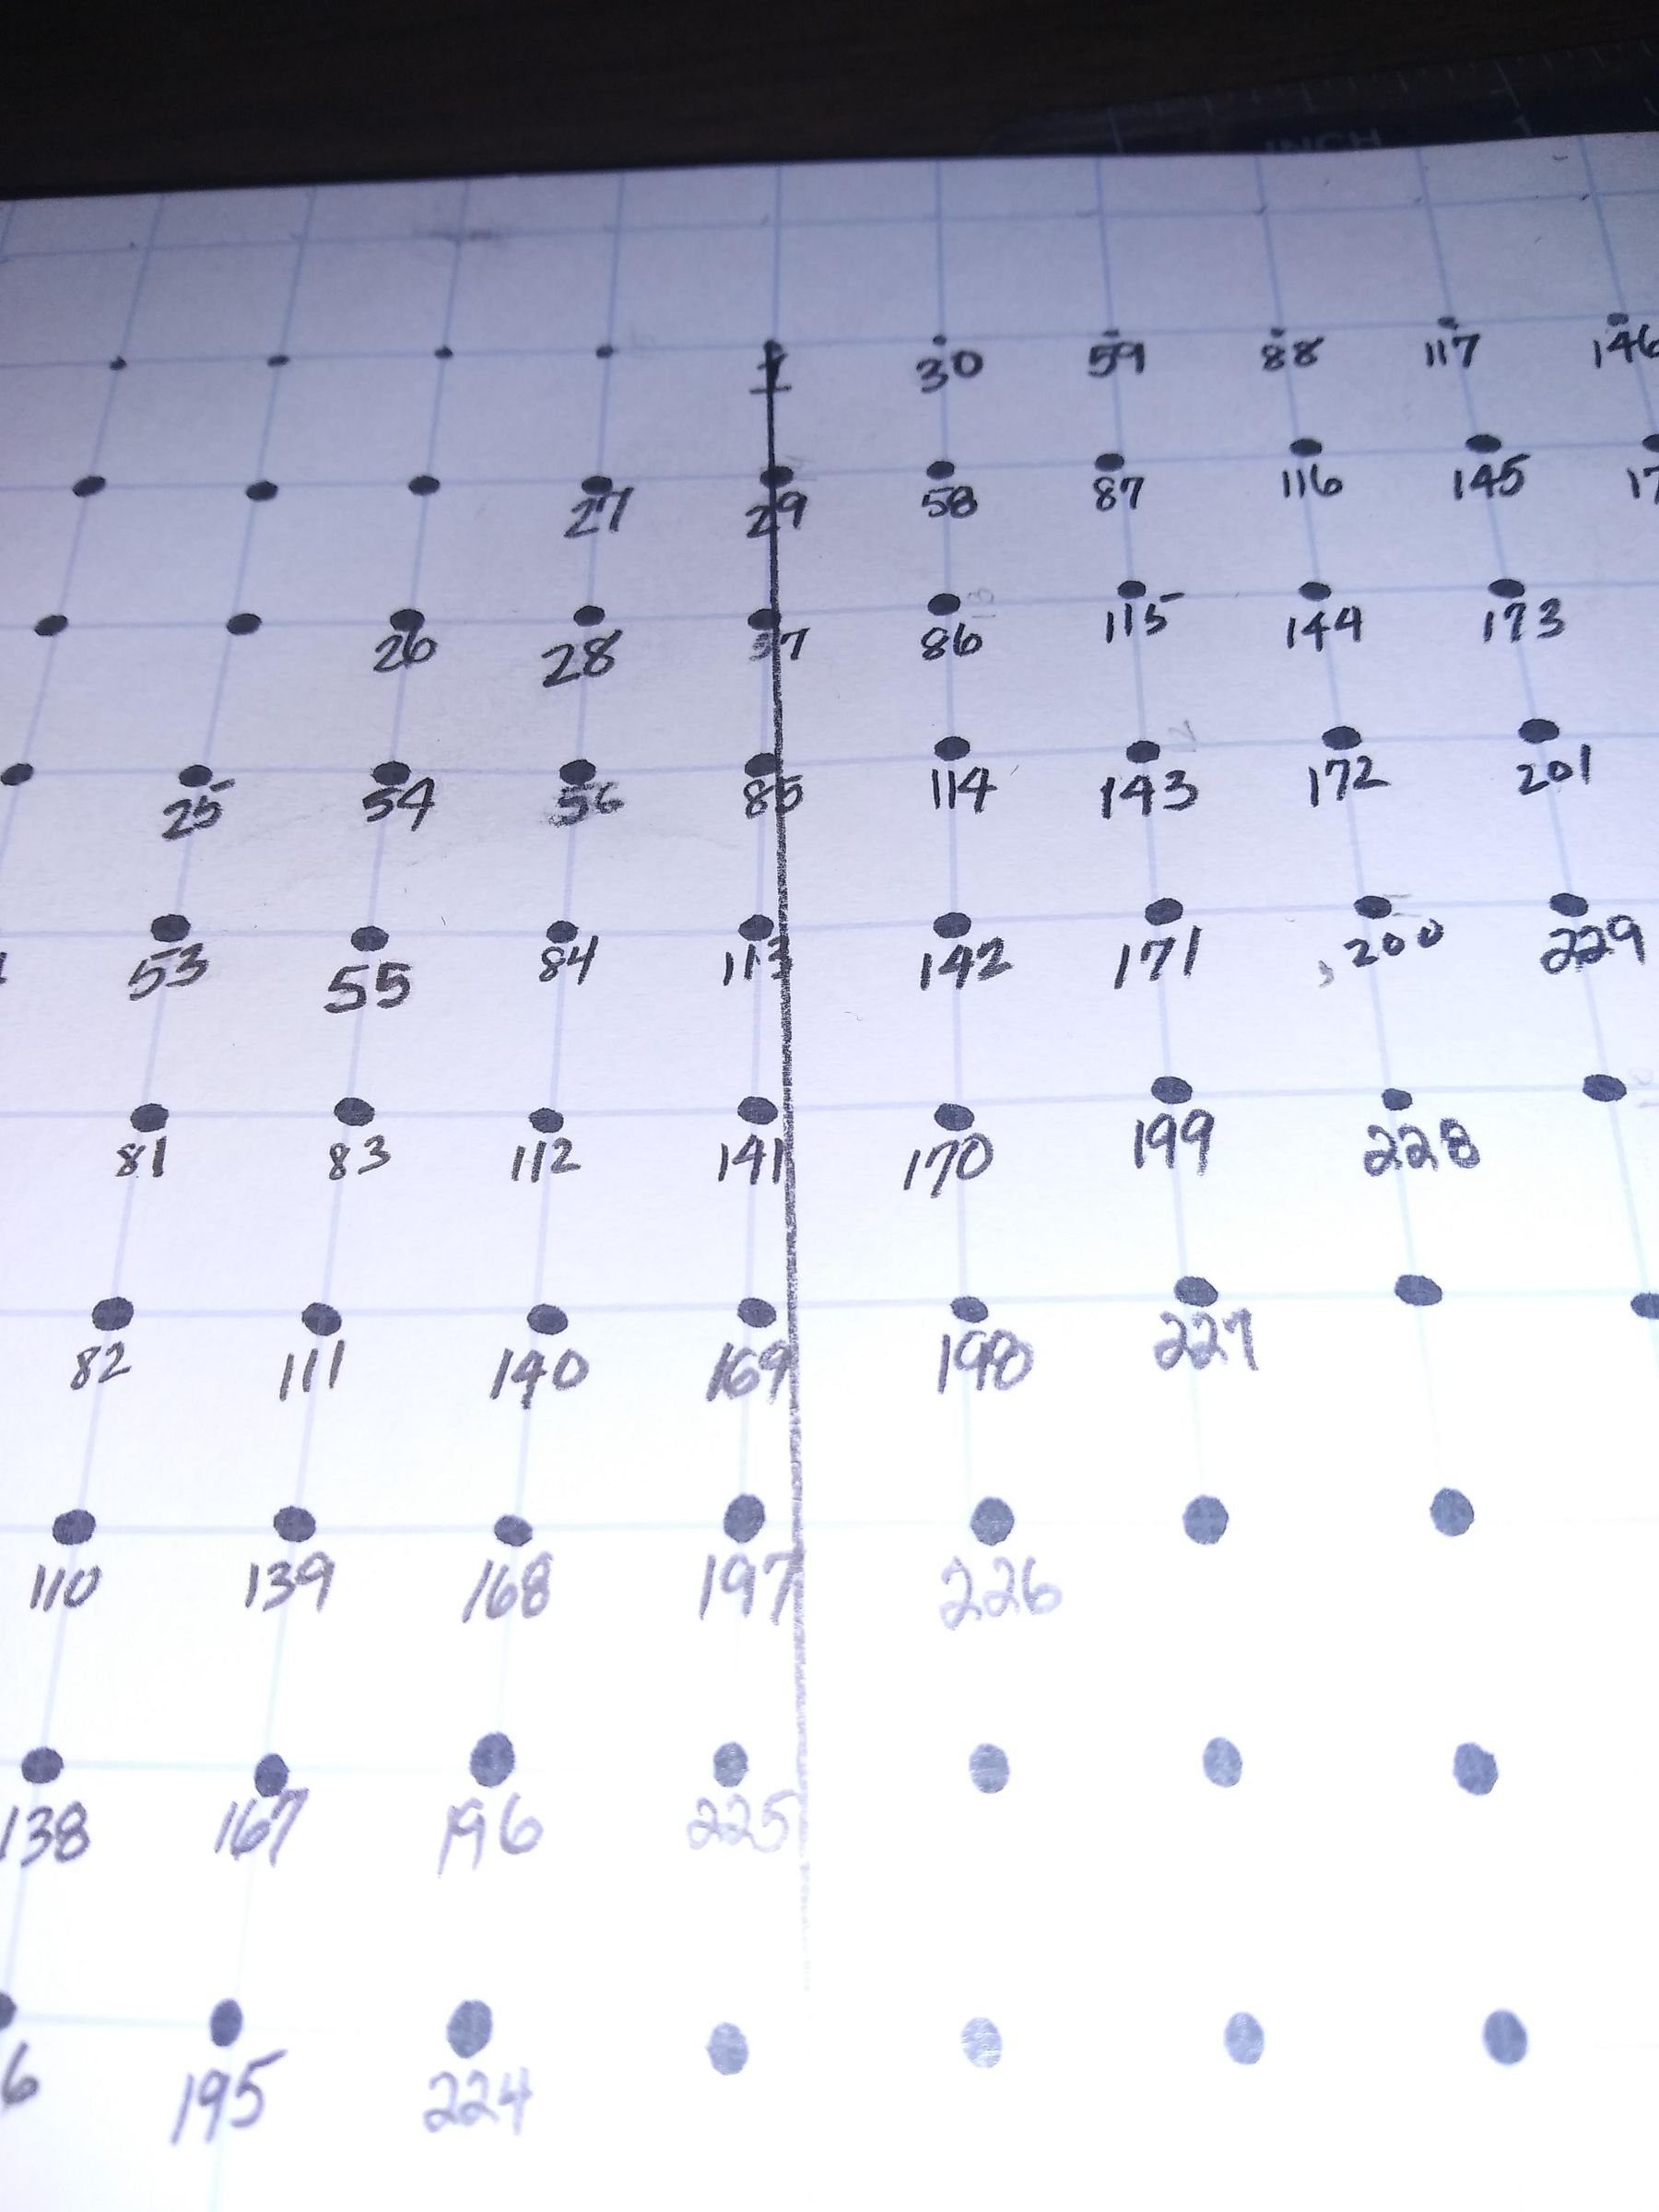 INCH 1
1 30 59 88 117 146
27 29 58 87 116 145 17
26 28 37 86 115 144 173
25 54 56 85 114 143 172 201
53 55 84 113 142 171 200 229
81 83 112 141 170 199 228
82 111 140 169 198 227
110 139 168 197 226
138 167 196 225
6 195 224